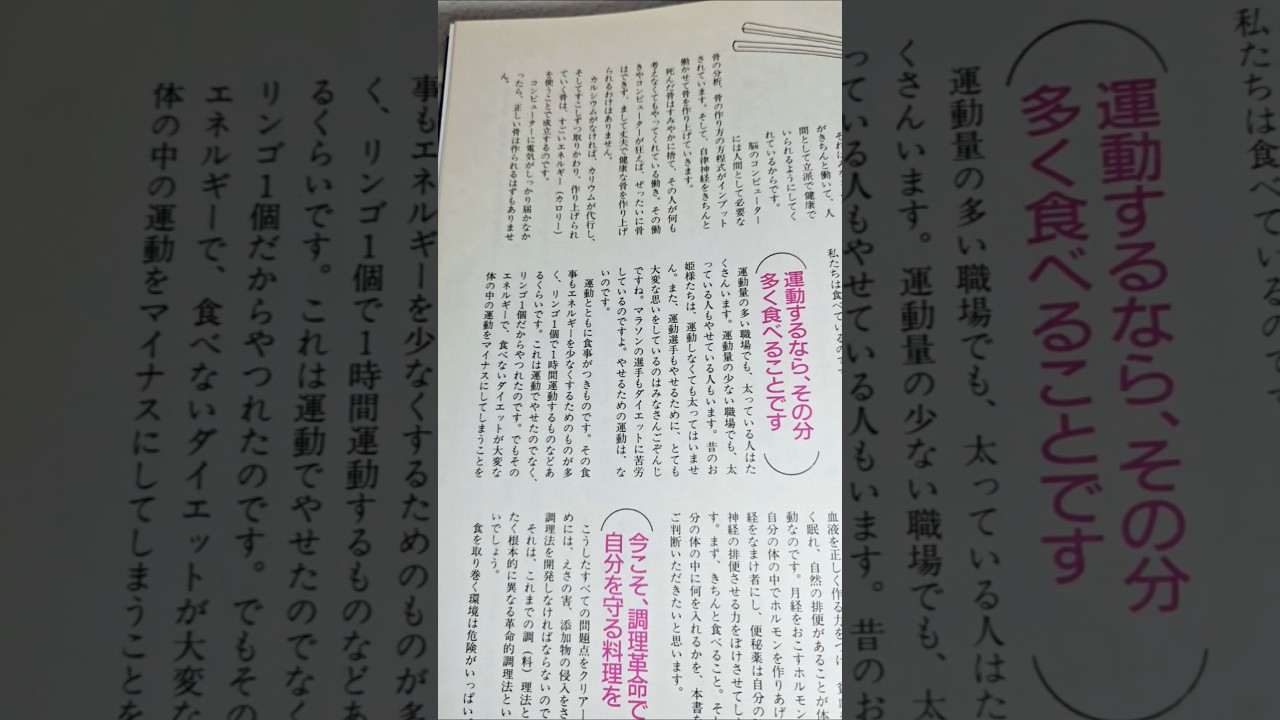 それは
がきちんと働いて、人
間として立派で健康で
いられるようにしてく
れているからです。
脳のコンピューター
には人間として必要な
骨の分析、骨の作り方の方程式がインプット
されています。そして、自律神経をきちんと
働かせて骨を作り上げていきます。
死んだ骨はすみやかに捨て、その人が何も
考えなくてもやってくれている働き。その働
きやコンピューターが狂えば、ぜったいに骨
はできず、まして丈夫で健康な骨を作り上げ
られるわけはありません。
カルシウムがなければ、カリウムが代行し、
そしてすこしずつ取りかわり、作り上げられ
ていく骨は、すごいエネルギー（カロリー）
を使うことで成立するのです。
コンピューターに電気がしっかり届かなか
ったら、正しい骨は作られるはずもありませ
ん。
私たちは食べているので
運動するなら、その分
多く食べることです
運動量の多い職場でも、太っている人はた
くさんいます。運動量の少ない職場でも、太
っている人もやせている人もいます。昔のお
姫様たちは、運動しなくても太ってはいませ
ん。また、運動選手もやせるために、とても
大変な思いをしているのはみなさんごぞんじ
ですね。マラソンの選手もダイエットに苦労
しているのですよ。やせるための運動は、な
いのです。
運動とともに食事がつきものです。その食
事もエネルギーを少なくするためのものが多
く、リンゴ1個で1時間運動するものなどあ
るくらいです。これは運動でやせたのでなく、
リンゴ1個だからやつれたのです。でもその
エネルギーで、食べないダイエットが大変な
体の中の運動をマイナスにしてしまうことを
血液を正しく作る力をつけ
く眠れ、自然の排便があることが体
動なのです。月経をおこすホルモン
自分の体の中でホルモンを作りあげ
経をなまけ者にし、便秘薬は自分の
神経の排便させる力をぼけさせてし
す。まず、きちんと食べること。そ
分の体の中に何を入れるかを、本書を
ご判断いただきたいと思います。
今こそ、調理革命で
自分を守る料理を
こうしたすべての問題点をクリアー
めには、えさの害、添加物の侵入をさ
調理法を開発しなければならないので
それは、これまでの調（料）理法と
たく根本的に異なる革命的調理法とい
いでしょう。
食を取り巻く環境は危険がいっぱい